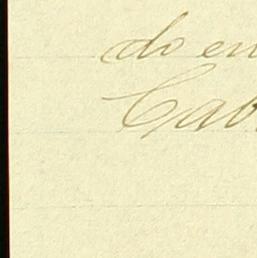 do en
Cab